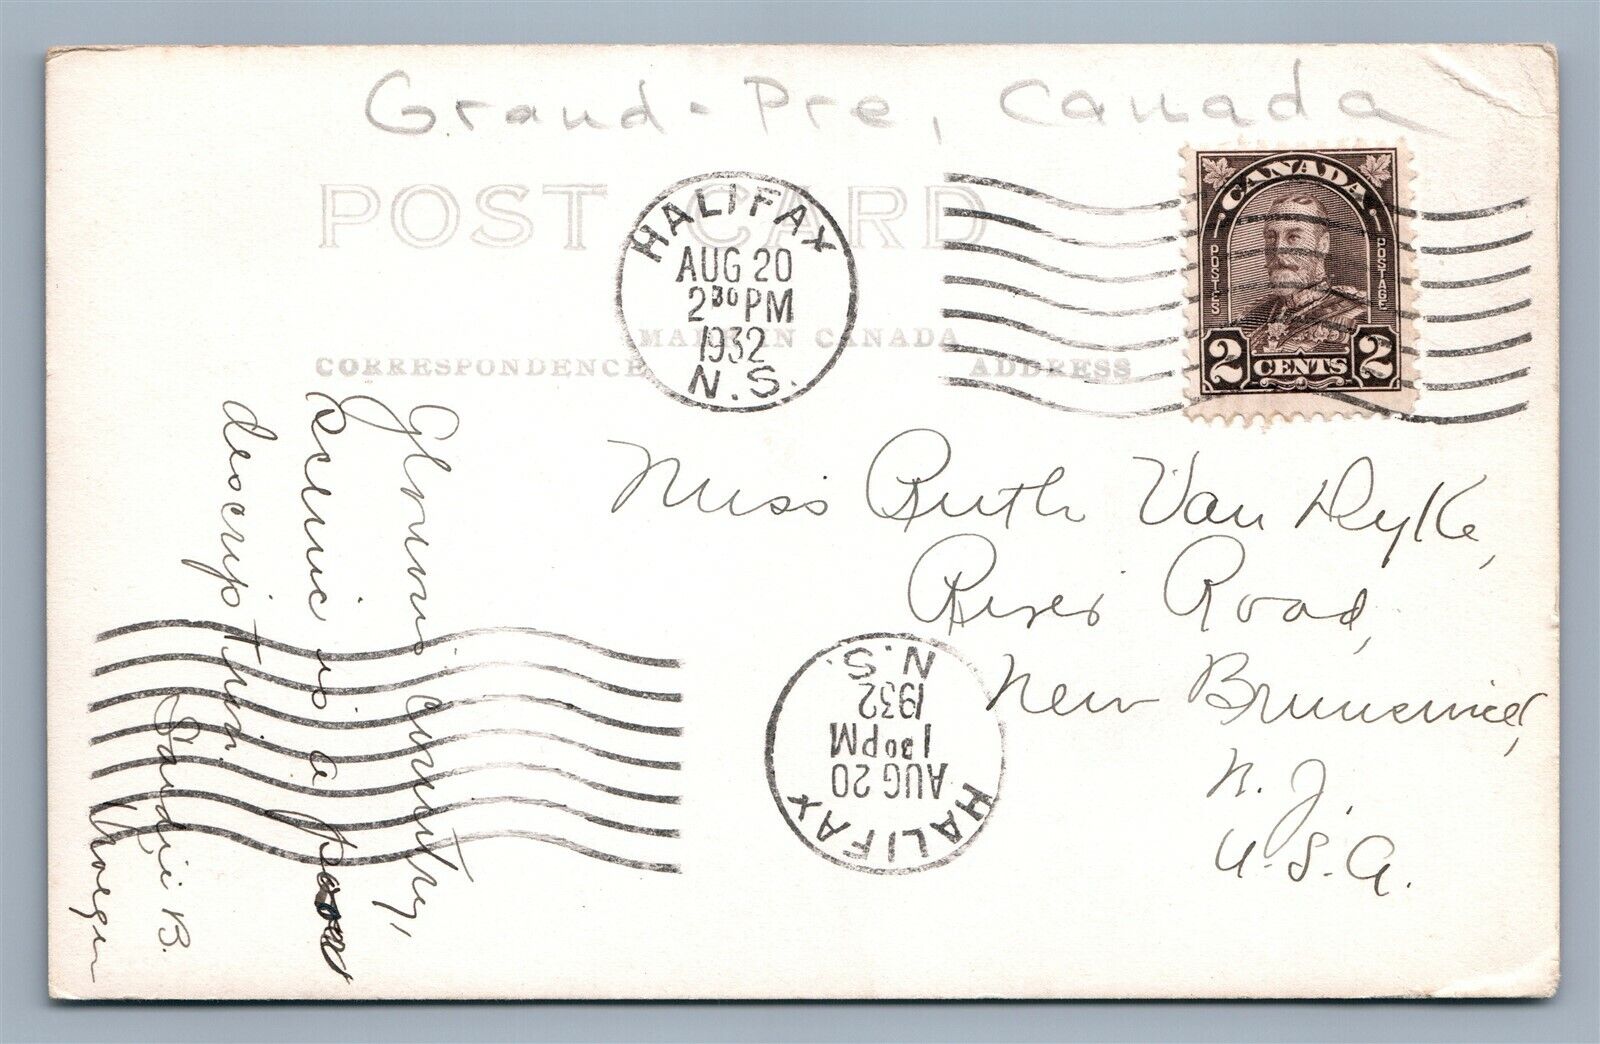 Grand-Pre, Canada
POST CARD
HALIFAX
AUG 20
2 30 PM
1932
N.S.
CANADA
POSTES
POSTAGE
2 CENTS 2
MADE IN CANADA
CORRESPONDENCE
ADDRESS
Glorious country,
Scenic is a poor
descrip tion.
Sadie B.
Miss Ruth Van Dyke,
River Road,
New Brunswick,
N. J.
U. S. A.
HALIFAX
AUG 20
1 30 PM
1932
N.S.